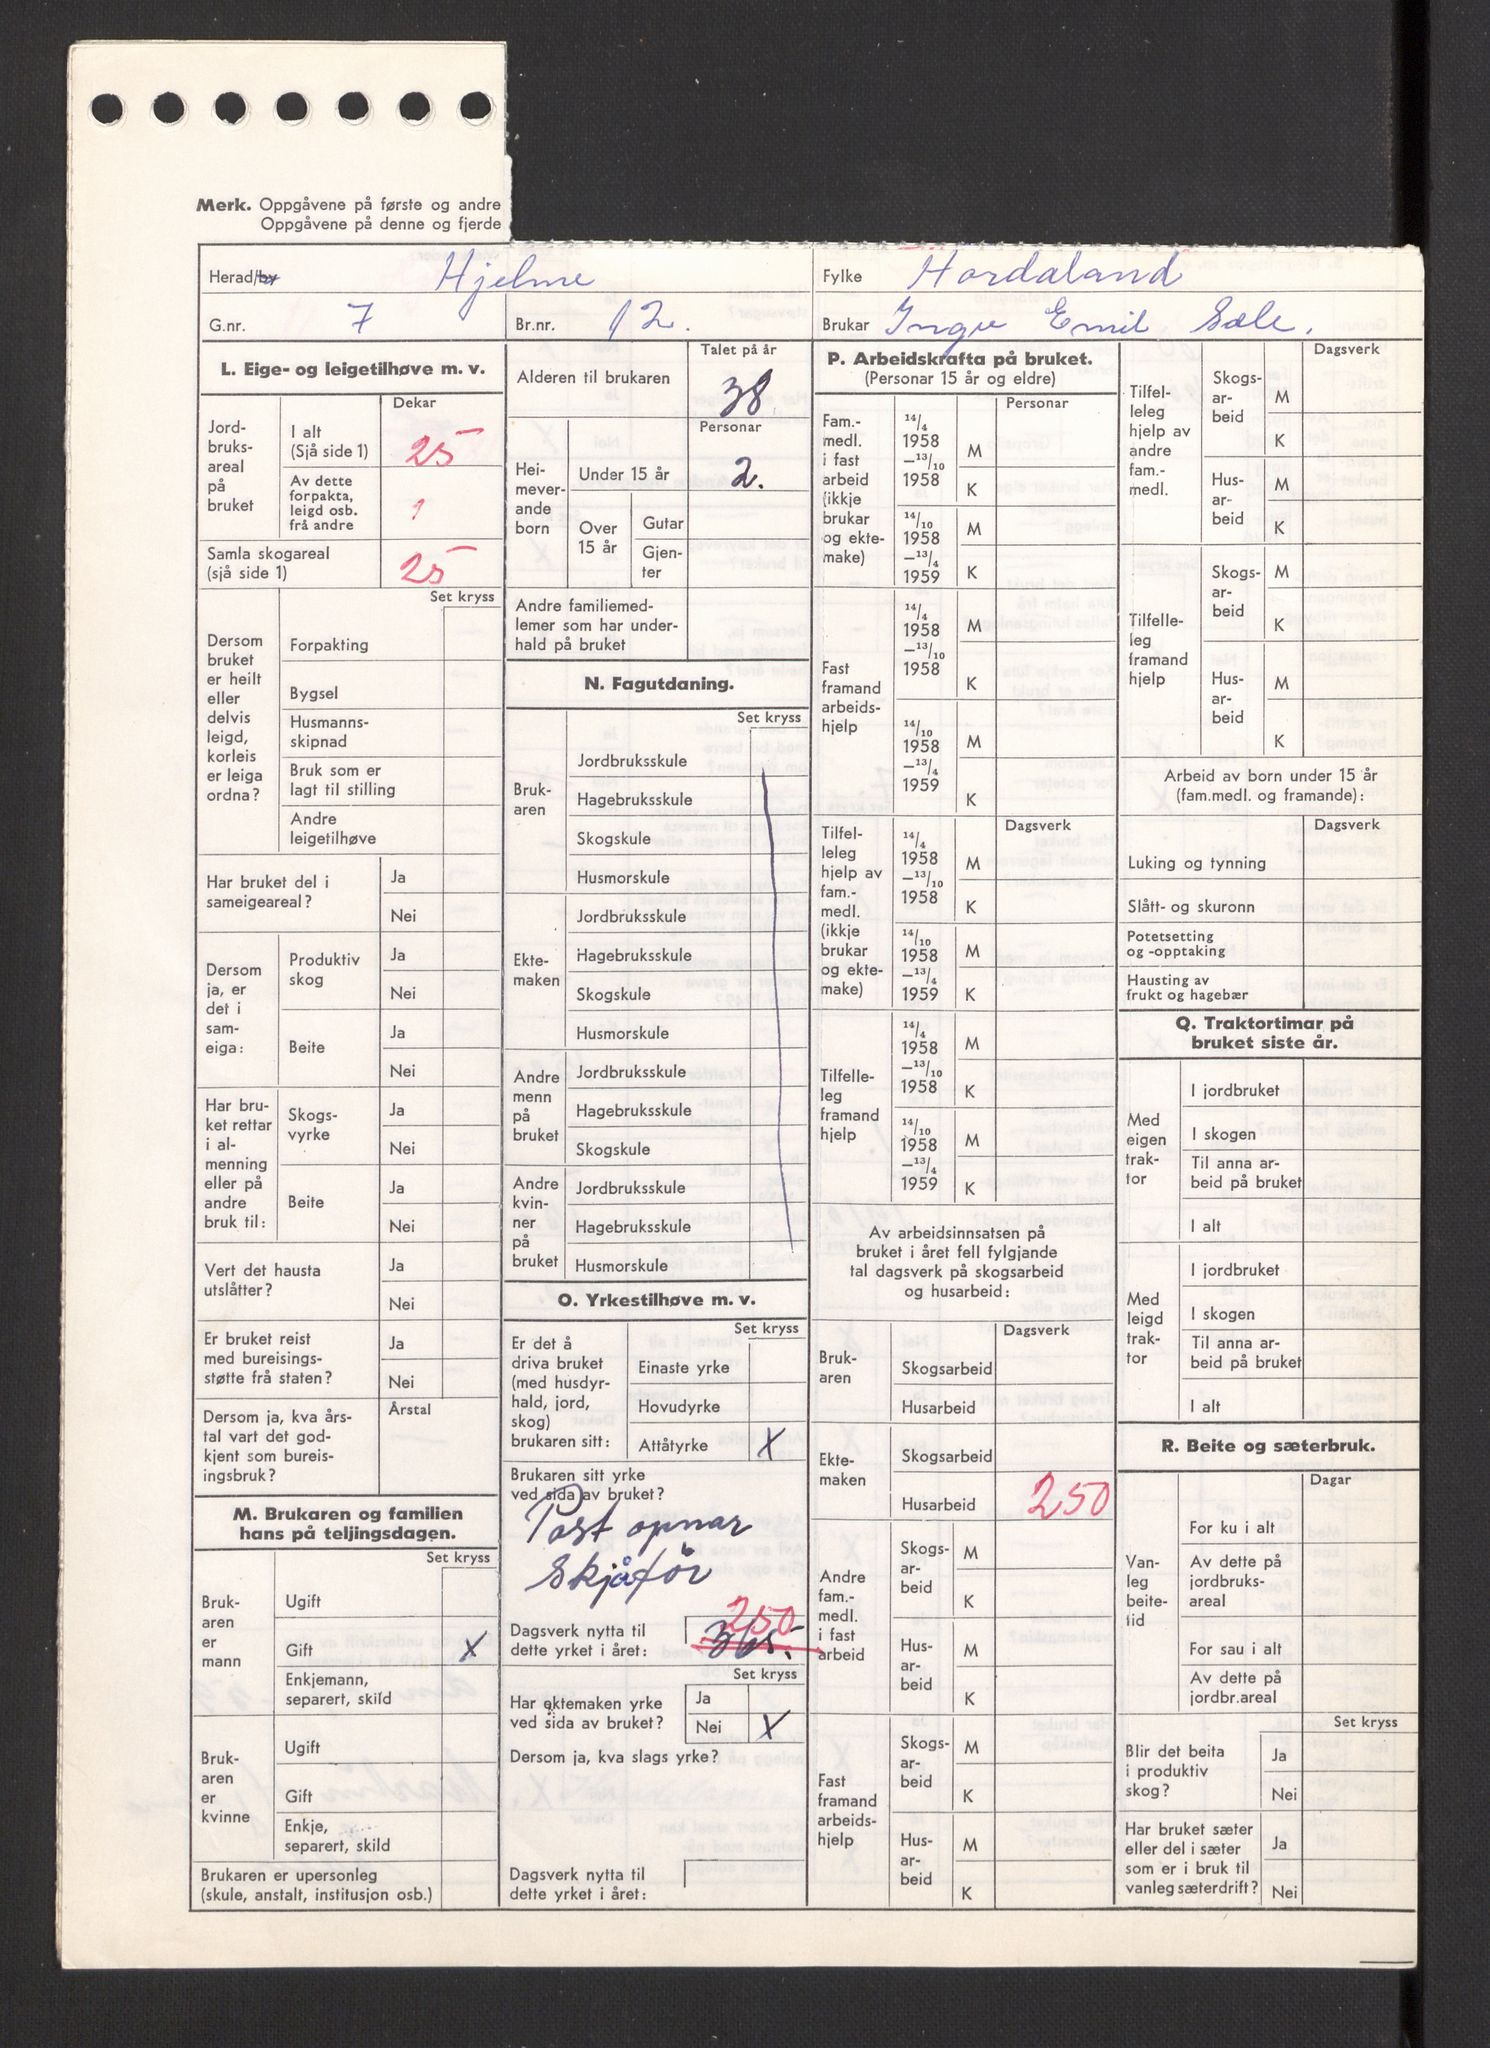 Merk. Oppgåvene på første og andre
Oppgåvene på denne og fjerde
Herad/by Hjelme
Fylke Hordaland
G.nr. 7
Br.nr. 12.
Brukar Ingv Emil Sæle.
L. Eige- og leigetilhøve m. v.
Dekar
Jord-
bruks-
areal
på
bruket
I alt
(Sjå side 1) 25
Av dette
forpakta,
leigd osb.
frå andre 1
Samla skogareal
(sjå side 1) 25
Set kryss
Dersom
bruket
er heilt
eller
delvis
leigd,
korleis
er leiga
ordna?
Forpakting
Bygsel
Husmanns-
skipnad
Bruk som er
lagt til stilling
Andre
leigetilhøve
Har bruket del i
sameigeareal?
Ja
Nei
Dersom
ja, er
det i
sam-
eiga:
Produktiv
skog
Ja
Nei
Beite
Ja
Nei
Har bru-
ket rettar
i al-
menning
eller på
andre
bruk til:
Skogs-
vyrke
Ja
Nei
Beite
Ja
Nei
Vert det hausta
utslåtter?
Ja
Nei
Er bruket reist
med bureisings-
støtte frå staten?
Ja
Nei
Dersom ja, kva års-
tal vart det god-
kjent som bureis-
ingsbruk?
Årstal
M. Brukaren og familien
hans på teljingsdagen.
Set kryss
Bruk-
aren
er
mann
Ugift
Gift X
Enkjemann,
separert, skild
Bruk-
aren
er
kvinne
Ugift
Gift
Enkje,
separert, skild
Brukaren er upersonleg
(skule, anstalt, institusjon osb.)
Talet på år
Alderen til brukaren 38
Personar
Hei-
mever-
ande
born
Under 15 år 2.
Over
15 år
Gutar
Gjen-
ter
Andre familiemed-
lemer som har under-
hald på bruket
N. Fagutdaning.
Set kryss
Bruk-
aren
Jordbruksskule
Hagebruksskule
Skogskule
Husmorskule
Ekte-
maken
Jordbruksskule
Hagebruksskule
Skogskule
Husmorskule
Andre
menn
på
bruket
Jordbruksskule
Hagebruksskule
Skogskule
Andre
kvin-
ner
på
bruket
Jordbruksskule
Hagebruksskule
Husmorskule
O. Yrkestilhøve m. v.
Set kryss
Er det å
driva bruket
(med husdyr-
hald, jord,
skog)
brukaren sitt:
Einaste yrke
Hovudyrke
Attåtyrke X
Brukaren sitt yrke
ved sida av bruket?
Post opnar
Skjåfør
Dagsverk nytta til
dette yrket i året:
250
365.
Set kryss
Har ektemaken yrke
ved sida av bruket?
Ja
Nei X
Dersom ja, kva slags yrke?
Dagsverk nytta til
dette yrket i året:
P. Arbeidskrafta på bruket.
(Personar 15 år og eldre)
Personar
Fam.-
medl.
i fast
arbeid
(ikkje
brukar
og ekte-
make)
14/4
1958
—13/10
1958
M
K
14/10
1958
—13/4
1959
M
K
Fast
framand
arbeids-
hjelp
14/4
1958
—13/10
1958
M
K
14/10
1958
—13/4
1959
M
K
Dagsverk
Tilfel-
leleg
hjelp av
fam.-
medl.
(ikkje
brukar
og ekte-
make)
14/4
1958
—13/10
1958
M
K
14/10
1958
—13/4
1959
M
K
Tilfelle-
leg
framand
hjelp
14/4
1958
—13/10
1958
M
K
14/10
1958
—13/4
1959
M
K
Av arbeidsinnsatsen på
bruket i året fell fylgjande
tal dagsverk på skogsarbeid
og husarbeid:
Dagsverk
Bruk-
aren
Skogsarbeid
Husarbeid
Ekte-
maken
Skogsarbeid
Husarbeid 250
Andre
fam.-
medl.
i fast
arbeid
Skogs-
ar-
beid
M
K
Hus-
ar-
beid
M
K
Fast
framand
arbeids-
hjelp
Skogs-
ar-
beid
M
K
Hus-
ar-
beid
M
K
Dagsverk
Tilfel-
leleg
hjelp av
andre
fam.-
medl.
Skogs-
ar-
beid
M
K
Hus-
ar-
beid
M
K
Tilfelle-
leg
framand
hjelp
Skogs-
ar-
beid
M
K
Hus-
ar-
beid
M
K
Arbeid av born under 15 år
(fam.medl. og framande):
Dagsverk
Luking og tynning
Slått- og skuronn
Potetsetting
og -opptaking
Hausting av
frukt og hagebær
Q. Traktortimar på
bruket siste år.
Med
eigen
trak-
tor
I jordbruket
I skogen
Til anna ar-
beid på bruket
I alt
Med
leigd
trak-
tor
I jordbruket
I skogen
Til anna ar-
beid på bruket
I alt
R. Beite og sæterbruk.
Dagar
Van-
leg
beite-
tid
For ku i alt
Av dette på
jordbruks-
areal
For sau i alt
Av dette på
jordbr.areal
Set kryss
Blir det beita
i produktiv
skog?
Ja
Nei
Har bruket sæter
eller del i sæter
som er i bruk til
vanleg sæterdrift?
Ja
Nei